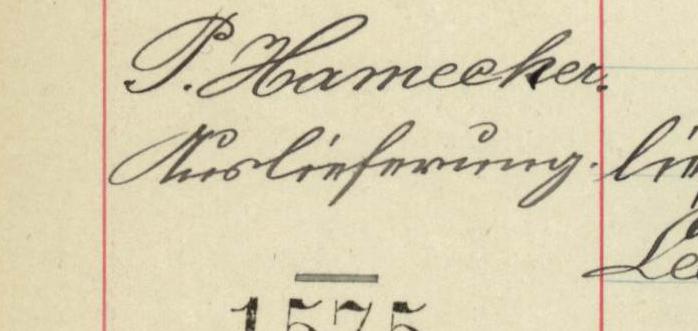 P. Hamecher.
Auslieferung.
1575